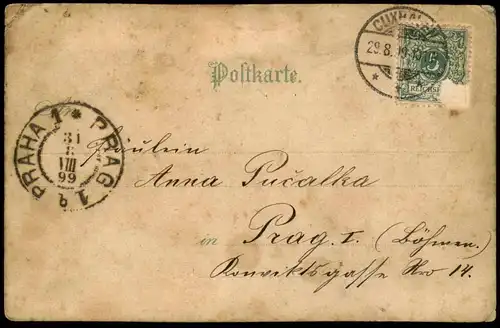 CUXHAVEN
29.8.99
REICHSPOST
5
Postkarte.
PRAHA 1 * PRAG 1
31
VIII
99
Fräulein
Anna Pučalka
in Prag. I. (Böhmen.)
Konviktsgasse Nro 14.